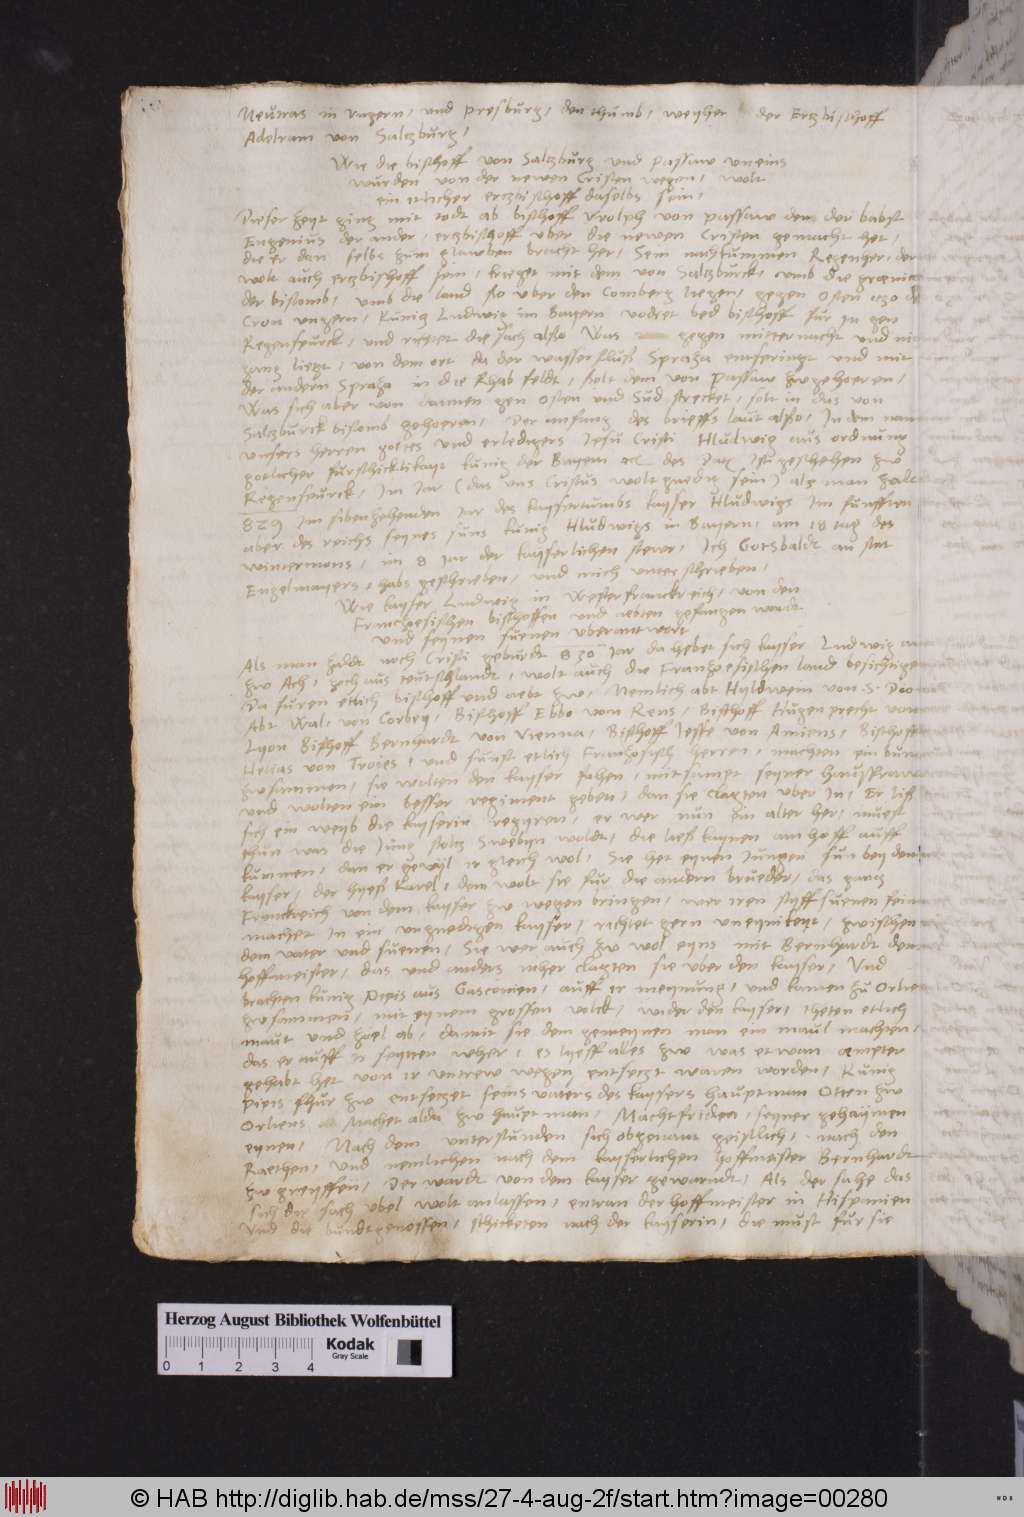 Neutras in Ungern, und Presburg, den thumb, weyhet der Ertzbisthoff
Adelram von Saltzburg,
Wie die bisthoff von Saltzburg und Passaw uneins
wurden von der newen Cristen wegen, wolt
ein itlicher ertzbisthoff daselbs sein,
Dieser zeyt ging mit todt ab bisthoff Vrolph von Passaw den der babst
Eugenius der ander, ertzbisthoff uber die newen Cristen gemacht het,
die er dan selbs zum glawben bracht het, Sein nachkummen Regenher, der
wolt auch ertzbisthoff sein, krieget mit dem von Saltzburck, umb die
der bistomb, umb die land so uber den Comberg liegen, gegen Osten itzo
Cron ungern, Kunig Ludwig in Bayern vodret bed bisthoff fur In gen
Regenspurck, und richtet die sach also Was gegen mitternacht und
gang liegt, von dem ort da der wasserfluß Spraza entspringt und mit
der andern Spraza in die Rhab feldt, solt dem von Passaw zwgehoeren,
Was sich aber von dannen gen Osten und Sud strecket, solt in das von
Saltzburck bistomb gehoeren, Der anfang des brieffs laut also, In dem
unsers herren gottes und erledigers Jesu Cristi Hludwig aus ordnung
gotlicher furschicklikayt kunig der Bayern des Dat Ist geschehen zw
Regenspurck, Im Iar (das uns Cristus wolt gnedig sein) als man
829 Im sibenzehenden Iar des kaysertumbs kayser Hludwigs Im funfften
aber des reichs seynes suns kunig Hludwigs in Bayern, am 18 tag des
wintermons, im 8 Iar der kayserlichen stewr, Ich Gotsbaldt an stat
Engelmayers, habs geschrieben, und mich unterschrieben,
Wie kayser Ludwig in Westerfranckreich, von den
Franczoesischen bisthoffen und aebten gefangen wardt
und seynen suenen uberantwort
Als man zaldt noch Cristi geburdt 830 Iar da hebet sich kayser Ludwig
zw Ach, zoch aus teutschlandt, wolt auch die Franzoesischen land
Da furen etlich bisthoff und aebt zw, Nemlich abt Hyldwein von S.
Abt Wal, von Corbey, Bisthoff Ebbo von Rens, Bisthoff Hugenprecht von
Lyon Bisthoff Bernhardt von Vienna, Bisthoff Jesse von Amiens, Bisthoff
Helias von Troies, und sunst etlich Franzosisch herren, machten ein
zwsammen, sie wolten den kayser fahen, mitsampt seyner
und wolten ein besser regiment geben, dan sie clagten uber In, Er ließ
sich ein weyb die kayserin regiren, er wer nun ein alter her, muest
thun was die Iung stoltz Swebyn woldt, die ließ kaynen am hoff auff
kummen, dan er geviil ir gleich wol, Sie het eynen Jungen sun bey dem
kayser, der hyeß karel, dem wolt sie fur die andern brueder, das gantz
Franckreich von dem kayser zw wegen bringen, wer iren styffsuenen
machet In ein ungnedigen kayser, richtet gern uneynikeyt, zwischen
dem vater und suenen, Sie wer auch zw wol eyns mit Bernhardt dem
hoffmeister, das und anders meher clagten sie uber den kayser, Und
brachten kunig Pepis aus Gasconien, auff ir meynung, und kamen zu
zwsammen, mit eynem grossen volck, wider den kayser, theten etlich
maut und zoel ab, damit sie dem gemeynen man ein maul machten,
das er auff seynen wher, es lyeff alles zw was etwan aempter
gehabt het von ir untrew wegen entsetzt waren worden, Kunig
Pipis fhur zw entsetzet seins vaters des kaysers hauptman Otten zw
Orliens Machet alda zw hauptman, Machtfriden, seyner gehaymen
eynen, Nach dem unterstunden sich obgenant geistlich, nach den
Raethen, und nemlichen nach dem kayserlichen hoffmeister Bernhardt
zw greyffen, Der wardt von dem kayser gewarndt, Als der sahe das
sich die sach ubel wolt anlassen, entran der hoffmeister in Hispanien
Und die bundtgenossen, schicketen nach der kayserin, die must fur sie
Herzog August Bibliothek Wolfenbüttel
Kodak
Gray Scale
0 1 2 3 4
© HAB http://diglib.hab.de/mss/27-4-aug-2f/start.htm?image=00280